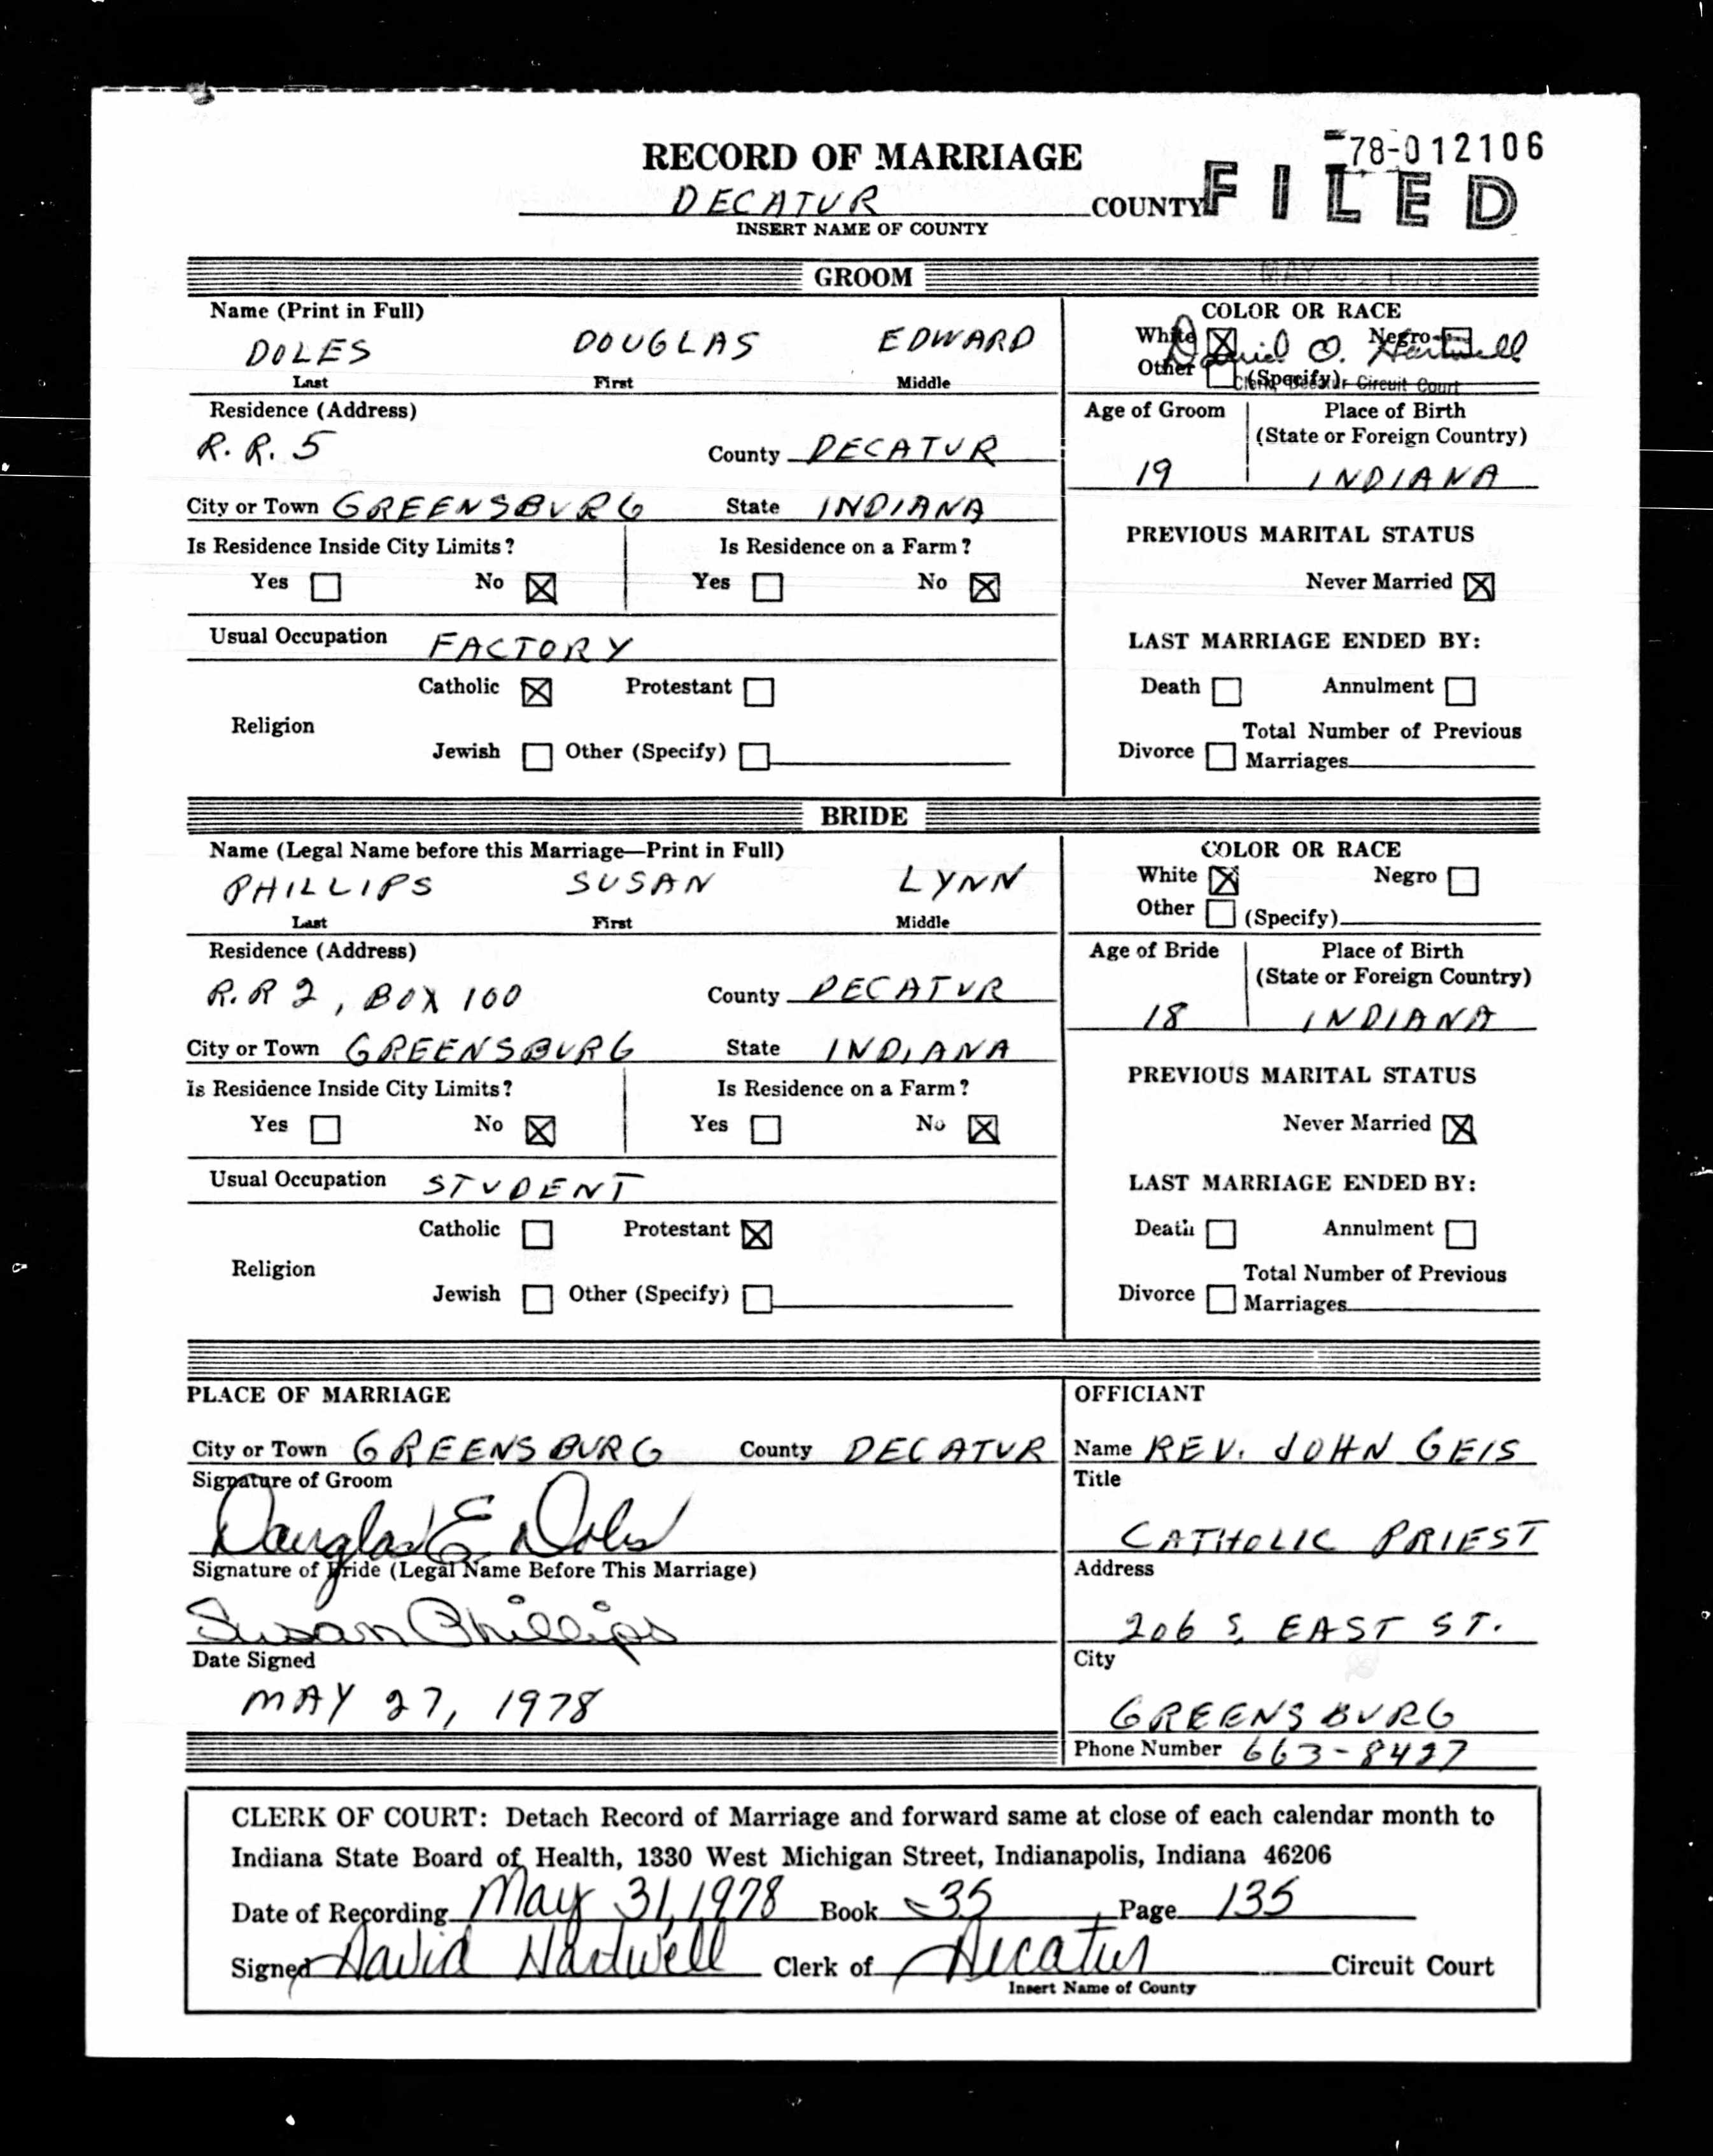 78-012106
RECORD OF MARRIAGE
FILED
DECATUR COUNTY
INSERT NAME OF COUNTY
GROOM
Name (Print in Full)
COLOR OR RACE
DOLES DOUGLAS EDWARD
White ☒ Negro ☐
David O. Hartwell
Last First Middle
Other ☐ (Specify)
Clerk Decatur Circuit Court
Residence (Address)
Age of Groom Place of Birth
(State or Foreign Country)
R. R. 5 County DECATUR
19 INDIANA
City or Town GREENSBURG State INDIANA
Is Residence Inside City Limits? Is Residence on a Farm?
PREVIOUS MARITAL STATUS
Yes ☐ No ☒ Yes ☐ No ☒
Never Married ☒
Usual Occupation FACTORY
LAST MARRIAGE ENDED BY:
Catholic ☒ Protestant ☐
Death ☐ Annulment ☐
Religion
Total Number of Previous
Jewish ☐ Other (Specify) ☐
Divorce ☐ Marriages
BRIDE
Name (Legal Name before this Marriage—Print in Full)
COLOR OR RACE
PHILLIPS SUSAN LYNN
White ☒ Negro ☐
Last First Middle
Other ☐ (Specify)
Residence (Address)
Age of Bride Place of Birth
(State or Foreign Country)
R. R 2, BOX 100 County DECATUR
18 INDIANA
City or Town GREENSBURG State INDIANA
Is Residence Inside City Limits? Is Residence on a Farm?
PREVIOUS MARITAL STATUS
Yes ☐ No ☒ Yes ☐ No ☒
Never Married ☒
Usual Occupation STUDENT
LAST MARRIAGE ENDED BY:
Catholic ☐ Protestant ☒
Death ☐ Annulment ☐
Religion
Total Number of Previous
Jewish ☐ Other (Specify) ☐
Divorce ☐ Marriages
PLACE OF MARRIAGE
OFFICIANT
City or Town GREENSBURG County DECATUR
Name REV. JOHN GEIS
Signature of Groom
Title
Douglas E. Doles
CATHOLIC PRIEST
Signature of Bride (Legal Name Before This Marriage)
Address
Susan Phillips
206 S. EAST ST.
Date Signed
City
MAY 27, 1978
GREENSBURG
Phone Number 663-8427
CLERK OF COURT: Detach Record of Marriage and forward same at close of each calendar month to
Indiana State Board of Health, 1330 West Michigan Street, Indianapolis, Indiana 46206
Date of Recording May 31, 1978 Book 35 Page 135
Signed David Hartwell Clerk of Decatur Circuit Court
Insert Name of County